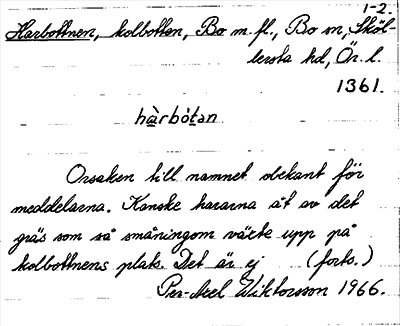 1-2.
Harbottnen, kolbotten, Bo m.fl., Bo sn, Sköl-
lersta hd, Ör. l.
1361.
hàrbótan
Orsaken till namnet obekant för
meddelarna. Kanske hararna åt av det
gräs som så småningom växte upp på
kolbottnens plats. Det är ej (forts.)
Per-Axel Wiktorsson 1966.